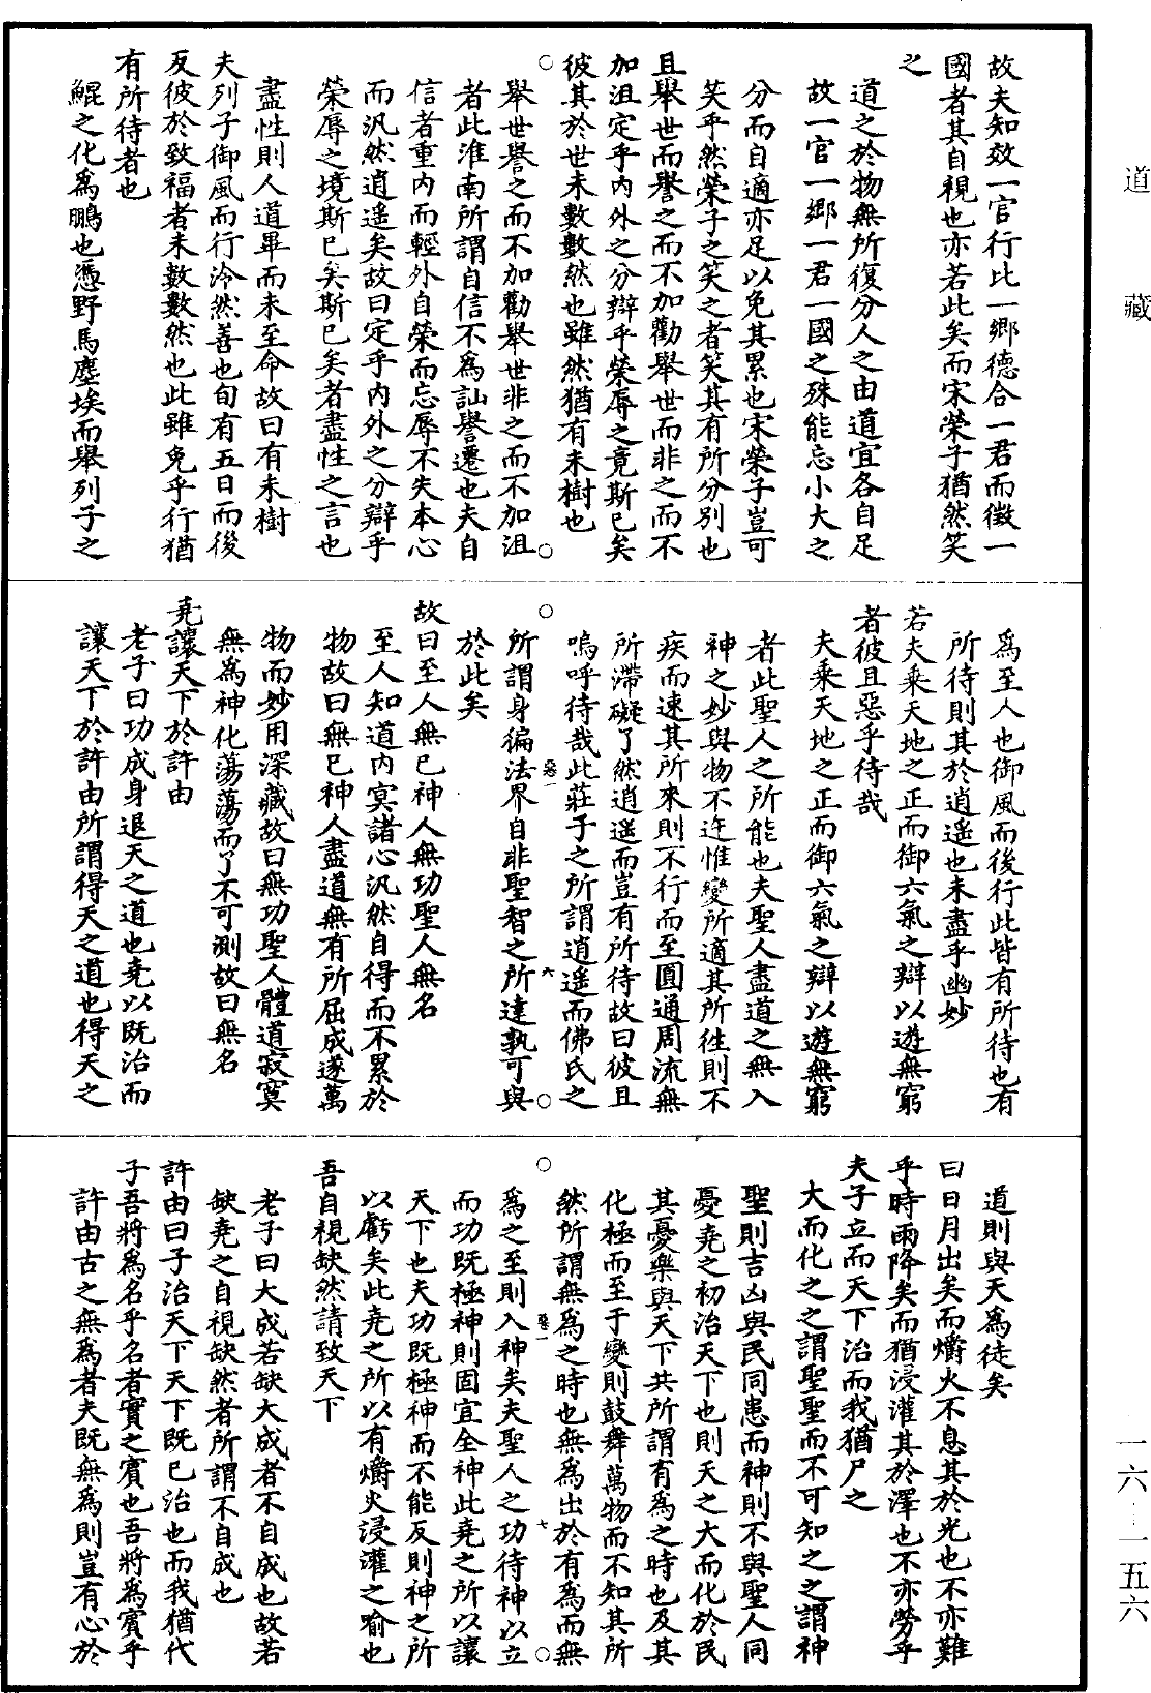 道藏
故夫知效一官行比一鄉德合一君而徵一
國者其自視也亦若此矣而宋榮子猶然笑
之
道之於物無所復分人之由道宜各自足
故一官一鄉一君一國之殊能忘小大之
分而自適亦足以免其累也宋榮子豈可
笑乎然榮子之笑之者笑其有所分別也
且舉世而譽之而不加勸舉世而非之而不
加沮定乎內外之分辯乎榮辱之竟斯已矣
彼其於世未數數然也雖然猶有未樹也
舉世譽之而不加勸舉世非之而不加沮
者此淮南所謂自信不為訕譽遷也夫自
信者重內而輕外自榮而忘辱不失本心
而汎然逍遥矣故曰定乎內外之分辯乎
榮辱之境斯已矣斯已矣者盡性之言也
盡性則人道畢而未至命故曰有未樹
夫列子御風而行泠然善也旬有五日而後
反彼於致福者未數數然也此雖免乎行猶
有所待者也
鯤之化為鵬也憑野馬塵埃而舉列子之
為至人也御風而後行此皆有所待也有
所待則其於逍遥也未盡乎幽妙
若夫乘天地之正而御六氣之辯以遊無窮
者彼且惡乎待哉
夫乘天地之正而御六氣之辯以遊無窮
者此聖人之所能也夫聖人盡道之無入
神之妙與物不迕惟變所適其所往則不
疾而速其所來則不行而至圓通周流無
所滯礙了然逍遥而豈有所待故曰彼且
嗚呼待哉此莊子之所謂逍遥而佛氏之
惡一
六
所謂身徧法界自非聖智之所達孰可與
於此矣
故曰至人無已神人無功聖人無名
至人知道內冥諸心汎然自得而不累於
物故曰無已神人盡道無有所屈成遂萬
物而妙用深藏故曰無功聖人體道寂寞
無為神化蕩蕩而了不可測故曰無名
堯讓天下於許由
老子曰功成身退天之道也堯以既治而
讓天下於許由所謂得天之道也得天之
道則與天為徒矣
曰日月出矣而爝火不息其於光也不亦難
乎時雨降矣而猶浸灌其於澤也不亦勞乎
夫子立而天下治而我猶尸之
大而化之之謂聖聖而不可知之之謂神
聖則吉凶與民同患而神則不與聖人同
憂堯之初治天下也則天之大而化於民
其憂樂與天下共所謂有為之時也及其
化極而至于變則鼓舞萬物而不知其所
然所謂無為之時也無為出於有為而無
惡一
七
為之至則入神矣夫聖人之功待神以立
而功既極神則固宜全神此堯之所以讓
天下也夫功既極神而不能反則神之所
以虧矣此堯之所以有爝火浸灌之喻也
吾自視缺然請致天下
老子曰大成若缺大成者不自成也故若
缺堯之自視缺然者所謂不自成也
許由曰子治天下天下既已治也而我猶代
子吾將為名乎名者實之賓也吾將為賓乎
許由古之無為者夫既無為則豈有心於
一六—一五六